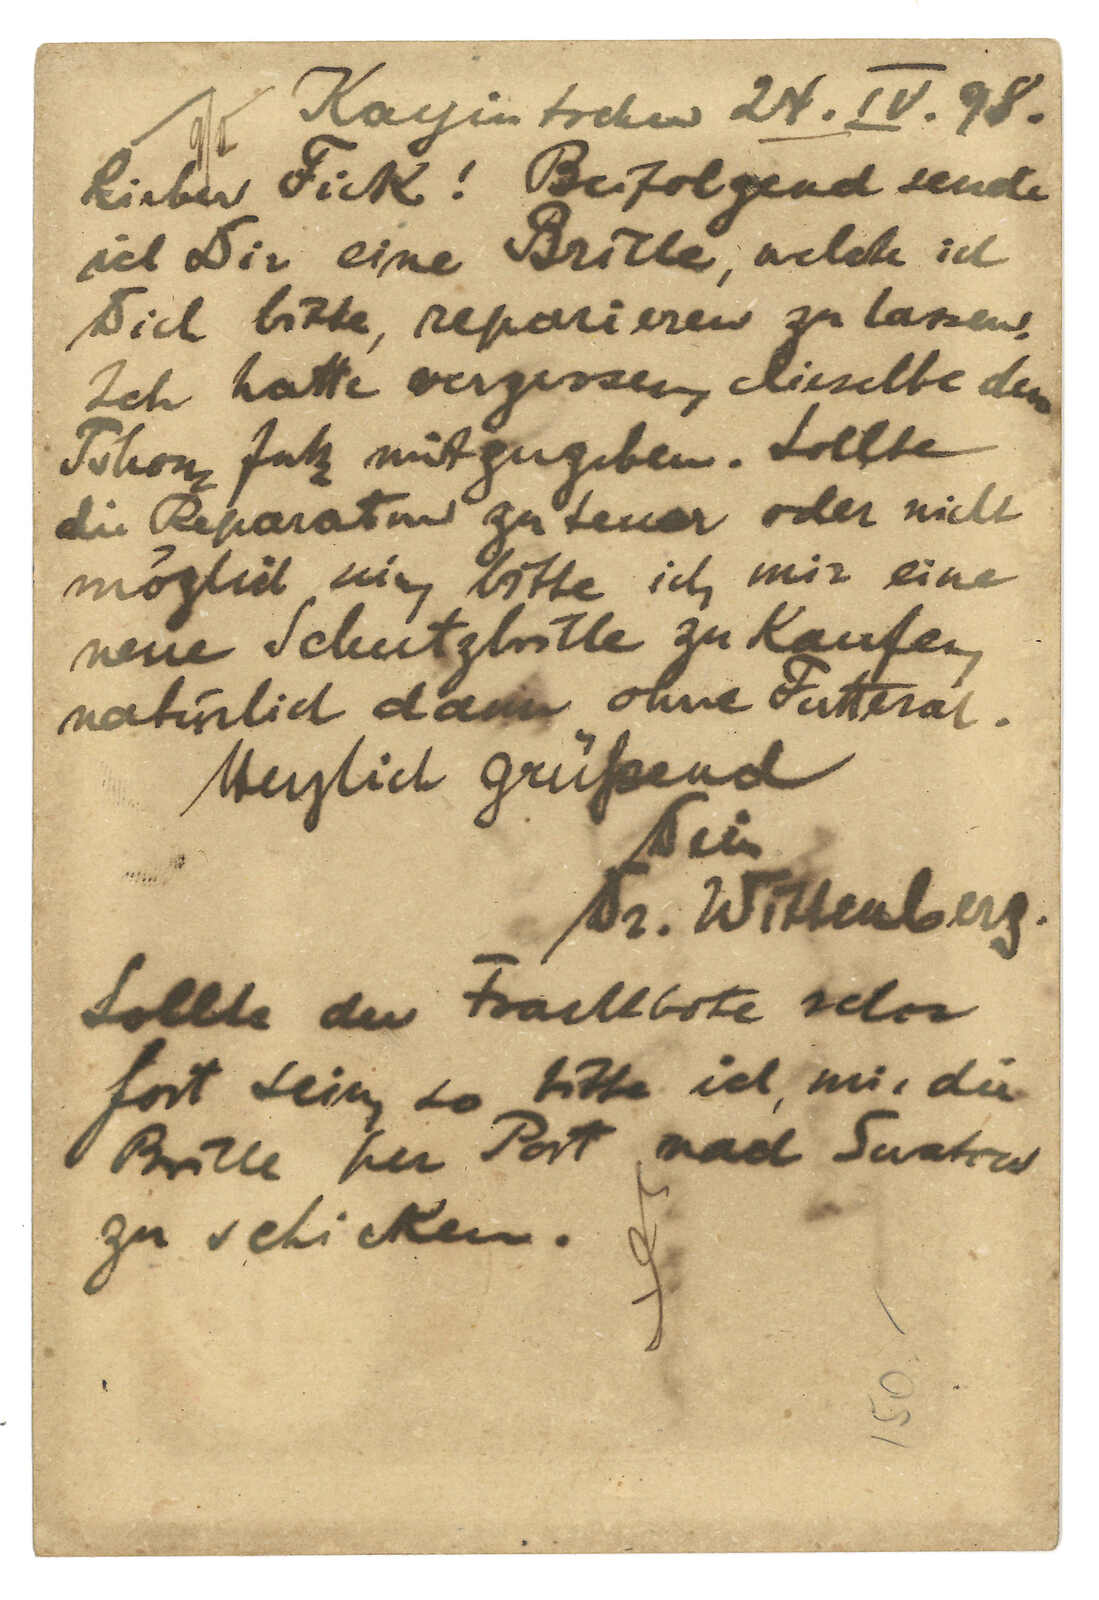 Kayintschu 24. IV. 98.
Lieber Fick! Beifolgend sende
ich Dir eine Brille, welche ich
Dich bitte, reparieren zu lassen.
Ich hatte vergessen, dieselbe dem
mitzugeben. Sollte
die Reparatur zu teuer oder nicht
möglich sein, bitte ich, mir eine
neue Schutzbrille zu kaufen,
natürlich dann ohne Futteral.
Herzlich grüßend
Dein
Dr. Wittenberg.
Sollte der Frachtbote schon
fort sein, so bitte ich, mir die
Brille per Post nach Swatow
zu schicken.
150